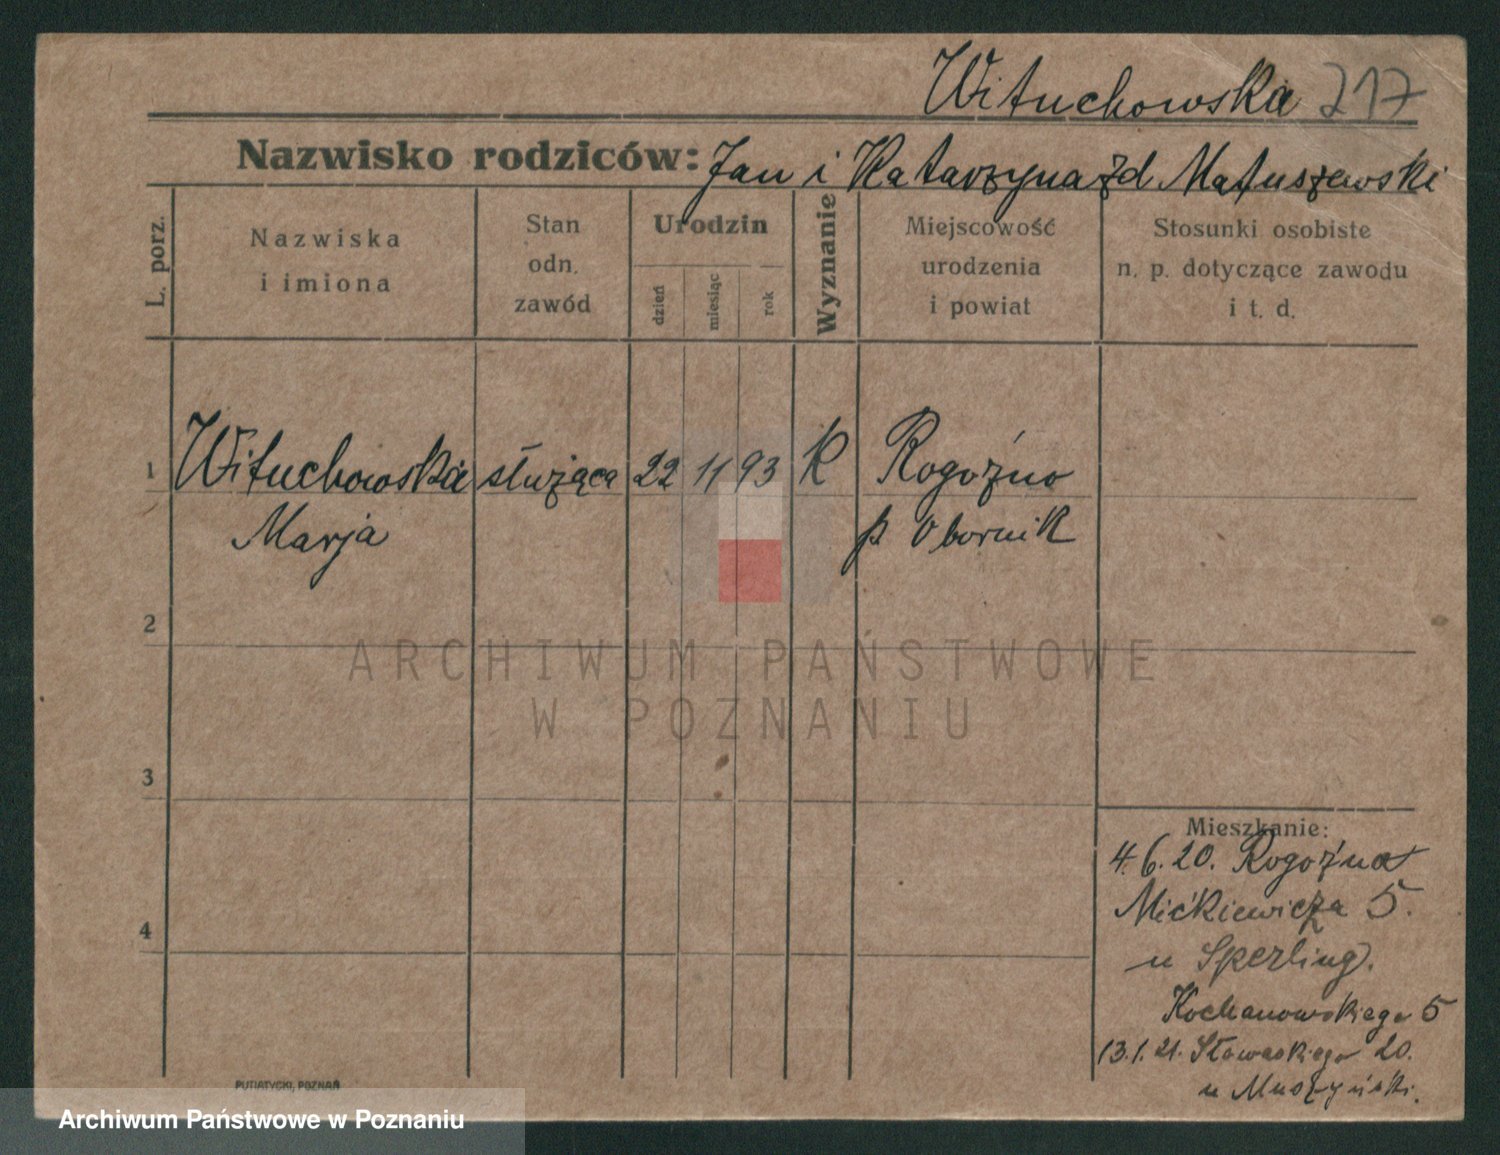 Wituchowska 217
Nazwisko rodziców: Jan i Katarzyna zd Matuszewski
L. porz.
Nazwiska
i imiona
Stan
odn.
zawód
Urodzin
dzień
miesiąc
rok
Wyznanie
Miejscowość
urodzenia
i powiat
Stosunki osobiste
n. p. dotyczące zawodu
i t. d.
1 Wituchowska służąca 22 11 93 K Rogoźno
Marja p Obornik
2
ARCHIWUM PAŃSTWOWE
W POZNANIU
3
4
Mieszkanie:
4.6.20. Rogoźna
Mickiewicza 5.
u Sperling.
Kochanowskiego 5
13.1.21. Słowackiego 20.
u Muszyński.
PUTIATYCKI, POZNAŃ
Archiwum Państwowe w Poznaniu